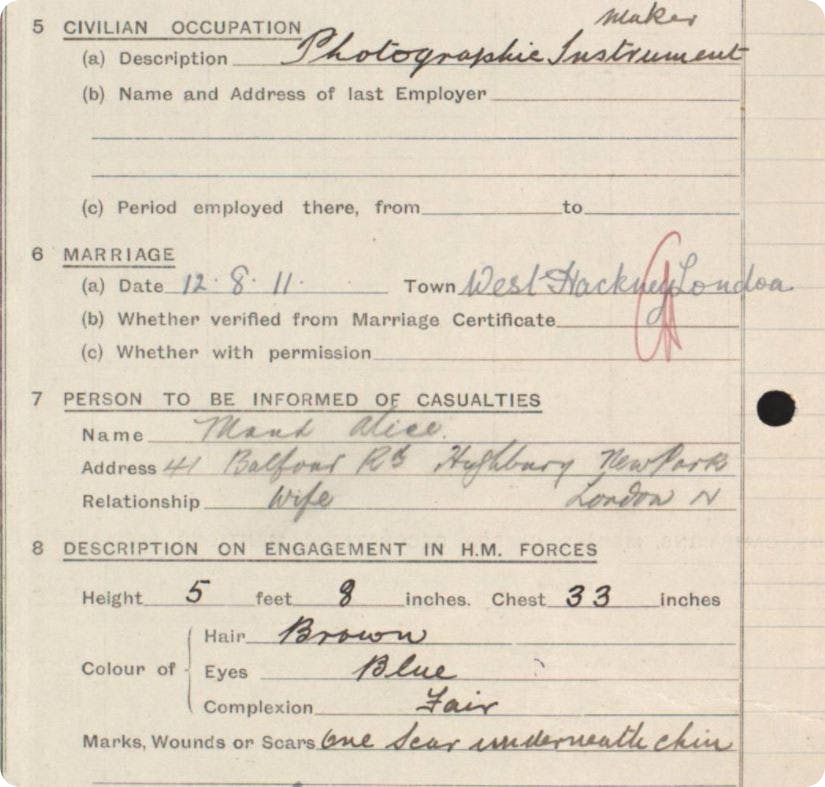 maker
5 CIVILIAN OCCUPATION
(a) Description Photographic Instrument
(b) Name and Address of last Employer
(c) Period employed there, from to
6 MARRIAGE
(a) Date 12.8.11. Town West Hackney London
(b) Whether verified from Marriage Certificate
(c) Whether with permission
7 PERSON TO BE INFORMED OF CASUALTIES
Name Maud Alice.
Address 41 Balfour Rd Highbury New Park
Relationship Wife London N
8 DESCRIPTION ON ENGAGEMENT IN H.M. FORCES
Height 5 feet 8 inches. Chest 33 inches
Hair Brown
Colour of Eyes Blue
Complexion Fair
Marks, Wounds or Scars One Scar underneath chin